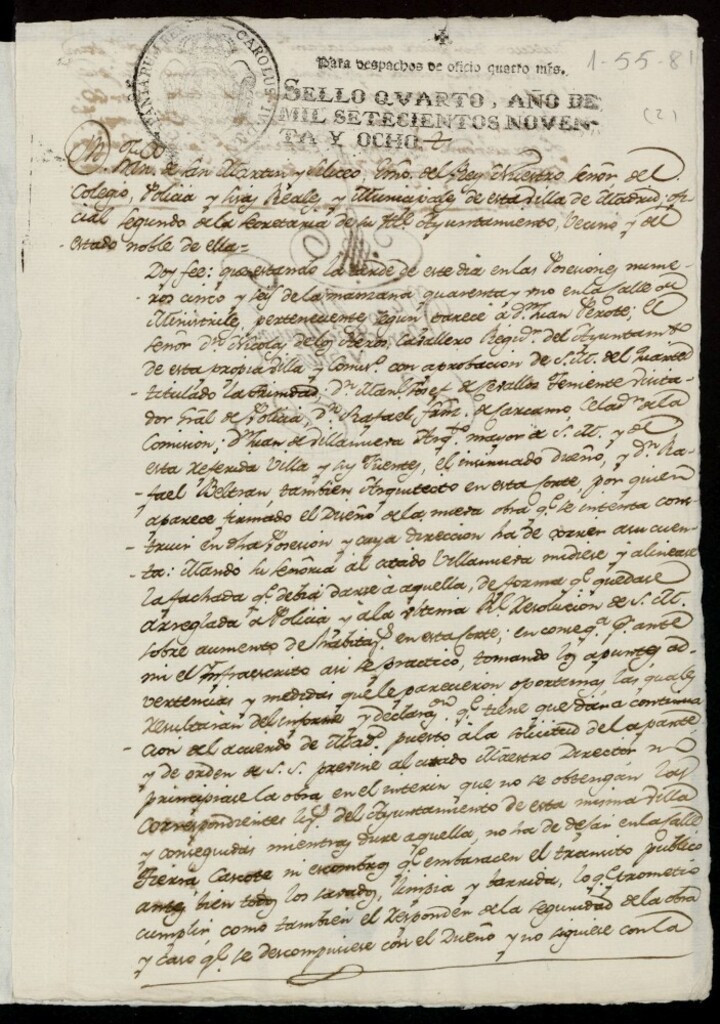 1-55-81
(2)
CAROLUS IV D G
Para despachos de oficio quatro mrs.
SELLO QVARTO, AÑO DE
MIL SETECIENTOS NOVEN-
TA Y OCHO
Dn. de San Martin y Eliceo, Essno. del Rey Nuestro señor del
Colegio, Policia y Reales, y Municipales de esta villa de Madrid, ofi-
cial segundo de la secretaria de su Ylle. Ayuntamiento, vecino y del
estado noble de ella =
Doy fee: que estando la tarde de este dia en las Posesiones nume-
ros cinco y seis de la manzana quarenta y uno en la Calle de
Ministriles, perteneciente segun parece à Dn. Juan Perote; el
señor Dn. Nicolas de los Heros, Cavallero Regidr. del Ayuntamto.
de esta propia villa y Comiso. con aprobacion de S. M. del Quartel
titulado la trinidad, Dn. Manl. Josef de Zevallos Teniente Visita-
dor Gral de Policia, Dn. Rafael Celadr. de la
Comision; Dn. Juan de Villanueva Arqto. mayor de S. M. y de
esta referida Villa y sus Fuentes, el insinuado Dueño, y Dn. Ra-
fael Beltran, tambien Arquitecto en esta Corte, por quien
aparece firmado el Diseño de la nueva obra qe. se intenta cons-
truir en dha Posesion y cuya direccion ha de correr a su cuen-
ta: Mando su señoria al citado Villanueva midiese y alinease
la fachada qe. debia darse à aquella, de forma qe. quedase
arreglada à Policia y à la ultima Rl. Resolucion de S. M.
sobre aumento de habitas. en esta Corte; en conseqa. qe. ante
mi el infraescrito asi se practicó, tomando los apuntes, ad-
vertencias y medidas que le parecieron oportunas, las quales
resultaran del informe y declaron. qe. tiene que dar à continua
cion del acuerdo de Madd. puesto à la solicitud del aparte
y de orden de S. S. previne al citado Maestro Director no
principiase la obra en el interin que no se obtengan las
correspondientes lizs. del Ayuntamiento de esta misma villa
y conseguidas mientras dure aquella, no ha de dejar en la Calle
tierra, Cascote ni escombros qe. embaracen el transito publico
antes bien todos los savados, limpia y barrida, lo qe. prometio
cumplir como tambien el responder de la seguridad de la obra
y caso qe. se descompusiese con el Dueño y no siguiese con la